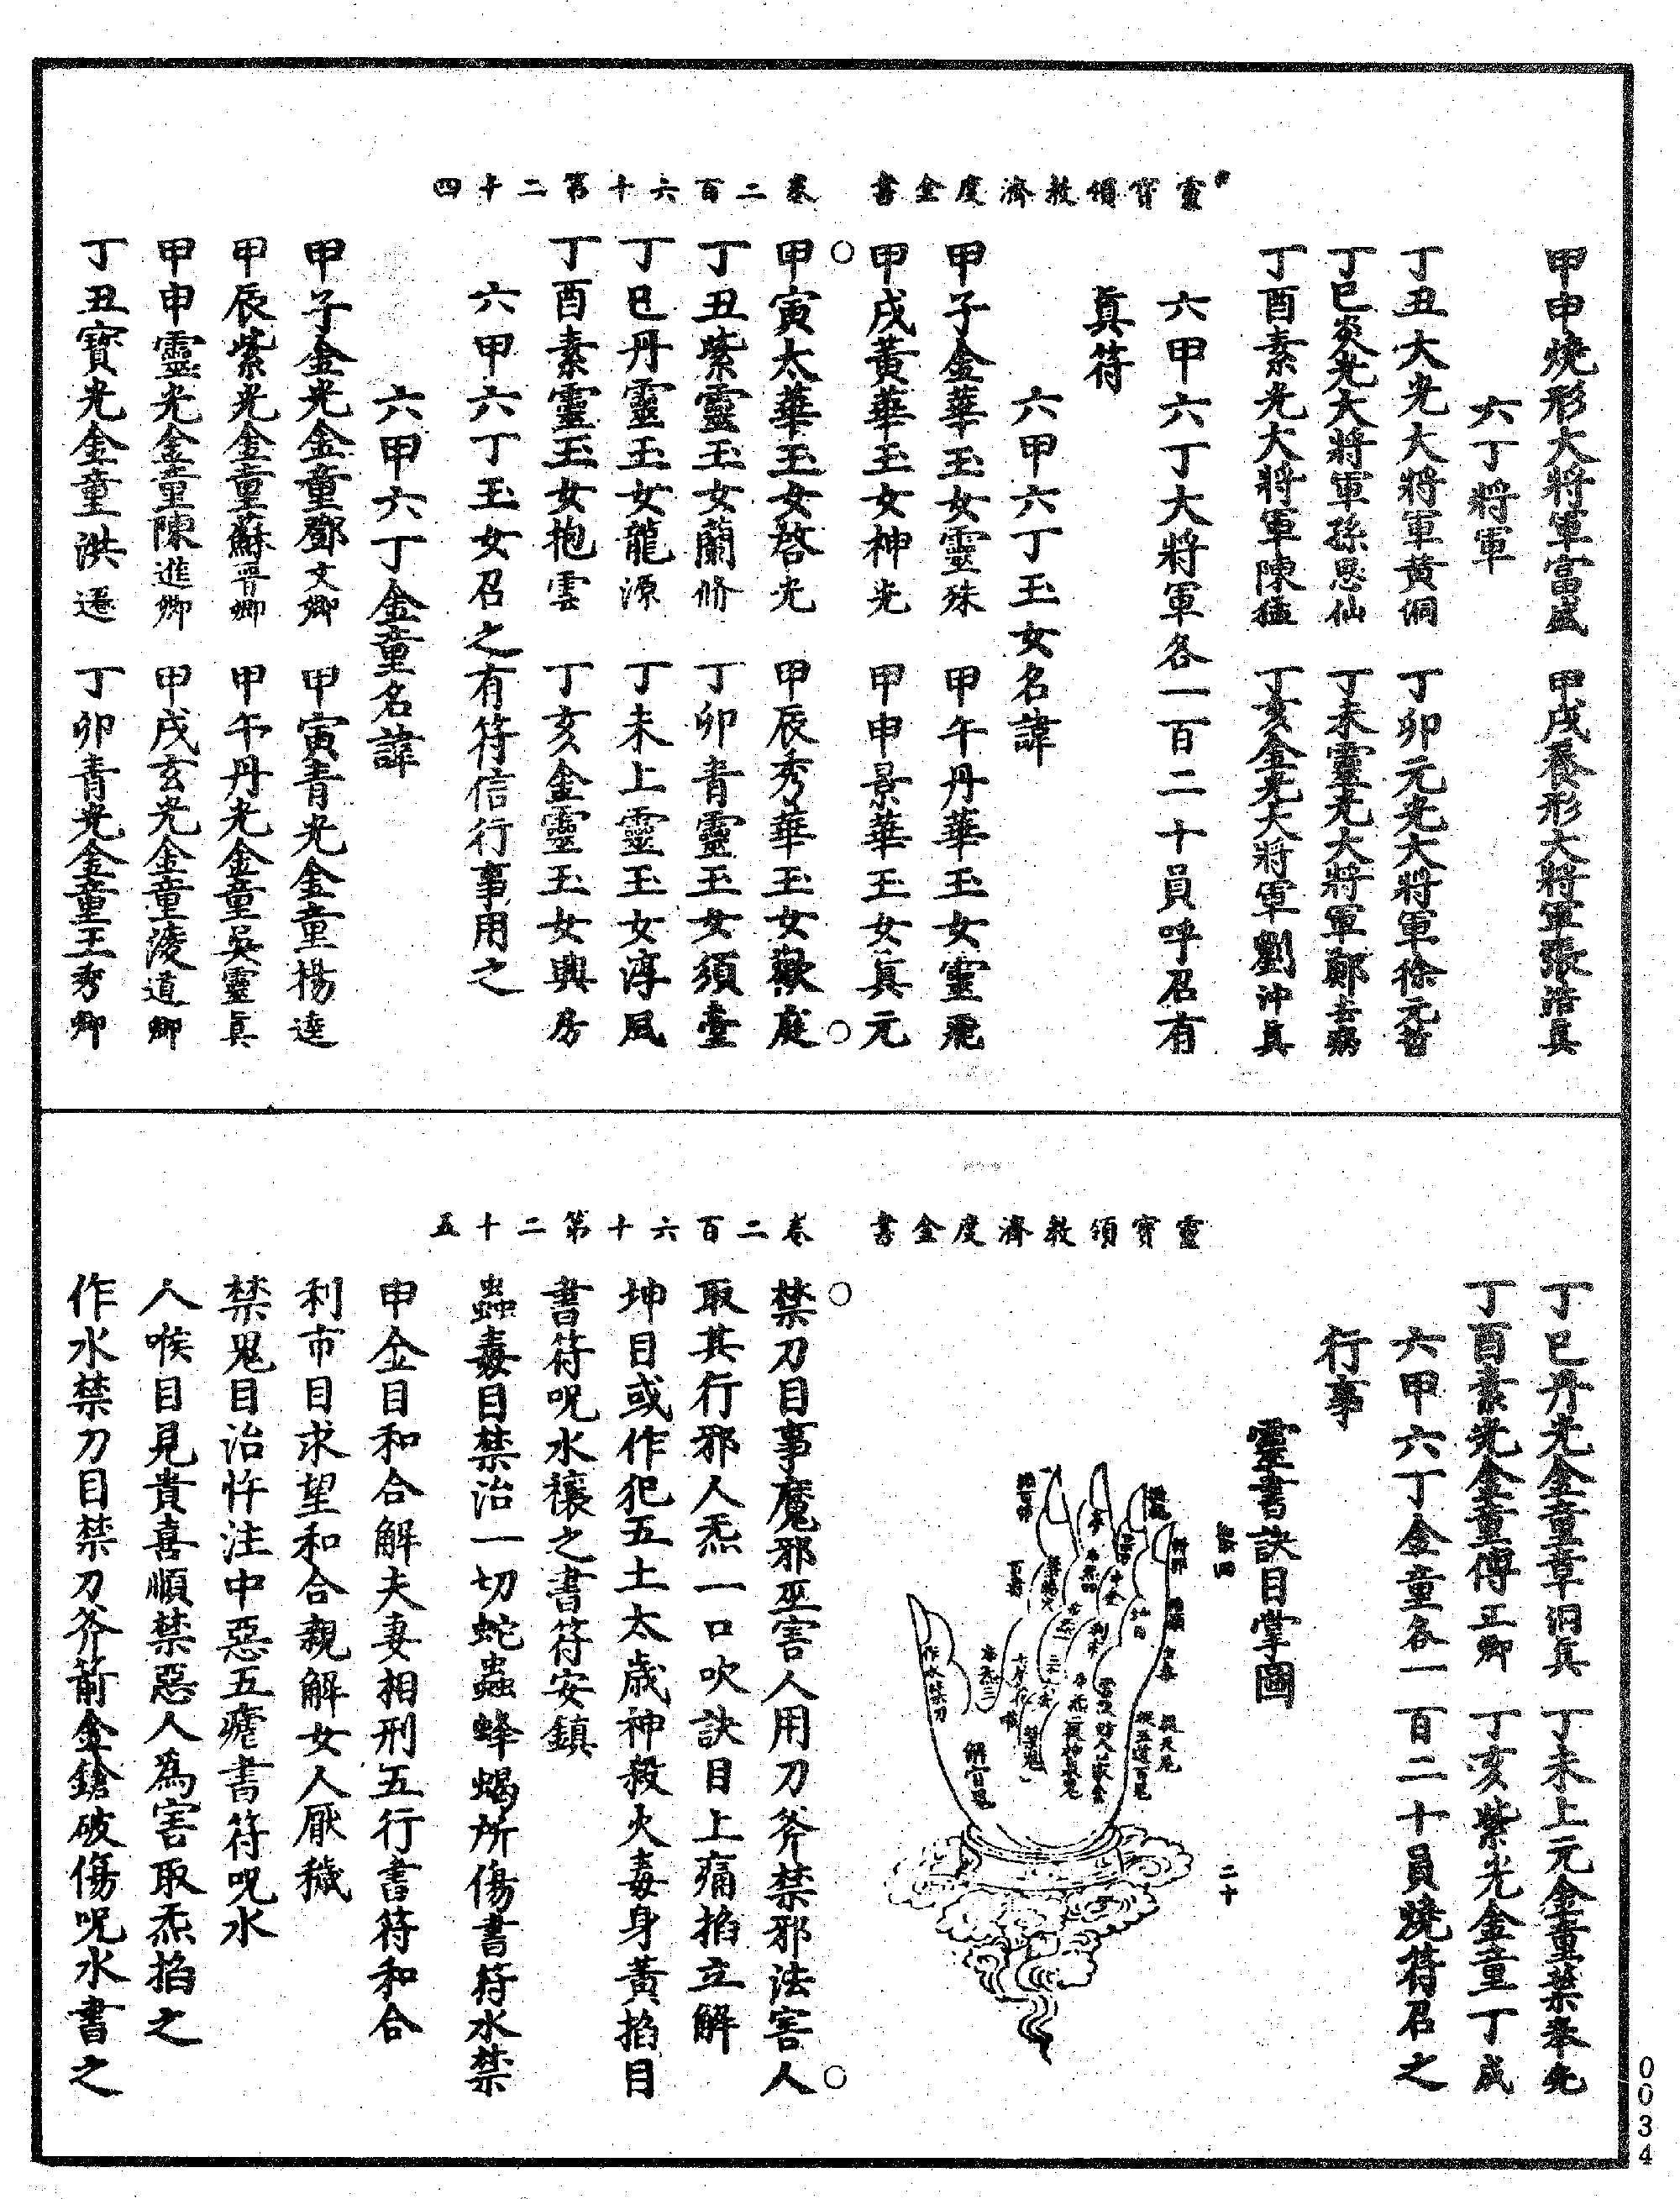 靈寶領教濟度金書　卷二百六十第二十四
甲申燒形大將軍富盛　甲戌養形大將軍張浩眞
六丁將軍
丁丑大光大將軍黃洞　丁卯元光大將軍徐元哲
丁巳炎光大將軍孫思仙　丁未靈光大將軍鄭去病
丁酉素光大將軍陳猛　丁亥金光大將軍劉沖眞
六甲六丁大將軍各一百二十員呼召有
眞符
六甲六丁玉女名諱
甲子金華玉女靈珠　甲午丹華玉女靈飛
甲戌黃華玉女神光　甲申景華玉女眞元
甲寅太華玉女啓光　甲辰秀華玉女歡庭
丁丑紫靈玉女蘭脩　丁卯青靈玉女須臺
丁巳丹靈玉女龍源　丁未上靈玉女淳風
丁酉素靈玉女抱雲　丁亥金靈玉女興房
六甲六丁玉女召之有符信行事用之
六甲六丁金童名諱
甲子金光金童鄧文卿　甲寅青光金童楊逵
甲辰紫光金童蘇晋卿　甲午丹光金童吳靈眞
甲申靈光金童陳進卿　甲戌玄光金童淩道卿
丁丑寶光金童洪遷　丁卯青光金童王秀卿
靈寶領教濟度金書　卷二百六十第二十五
丁巳丹光金童章泪眞　丁未上元金童葉奉先
丁酉素光金童傅正卿　丁亥紫光金童丁成
六甲六丁金童各一百二十員燒符召之
行事
靈書訣目掌圖
二十
作水禁刀
禁刀目事魔邪巫害人用刀斧禁邪法害人
取其行邪人炁一口吹訣目上痛掐立解
坤目或作犯五土太歲神殺火毒身黃掐目
書符呪水禳之書符安鎮
蟲毒目禁治一切蛇蟲蜂蝎所傷書符水禁
申金目和合解夫妻相刑五行書符和合
利市目求望和合親解女人厭穢
禁鬼目治忤注中惡五瘧書符呪水
人喉目見貴喜順禁惡人為害取炁掐之
作水禁刀目禁刀斧箭金鎗破傷呪水書之
0034